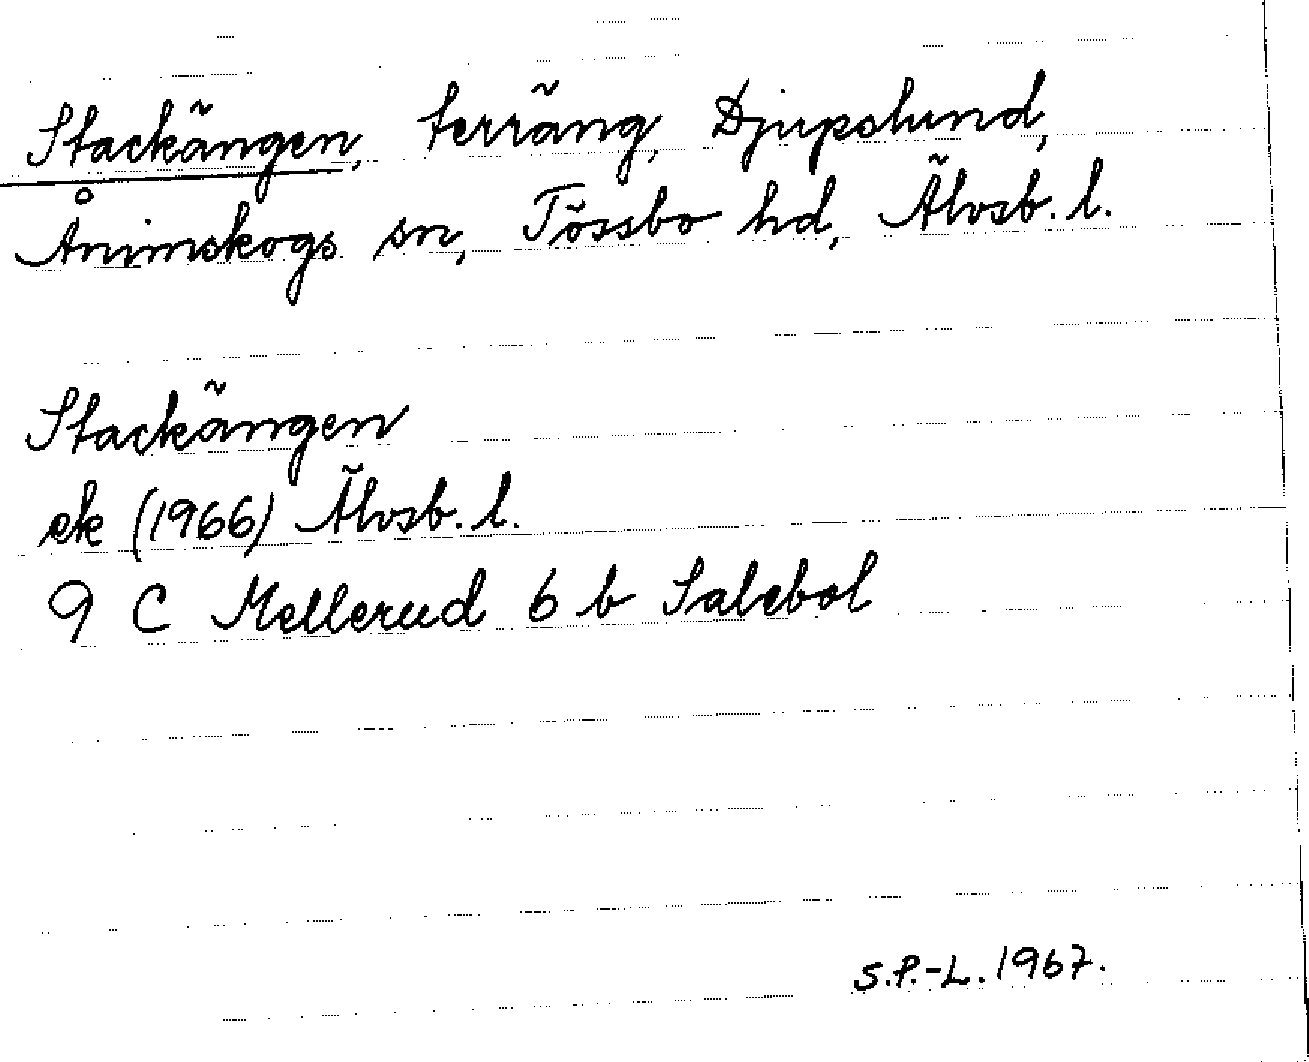 Stackängen, terräng, Djupslund,
Ånimskogs sn, Tössbo hd, Älvsb. l.
Stackängen
ek (1966) Älvsb. l.
9 C Mellerud 6 b Salebol
S.P.-L. 1967.